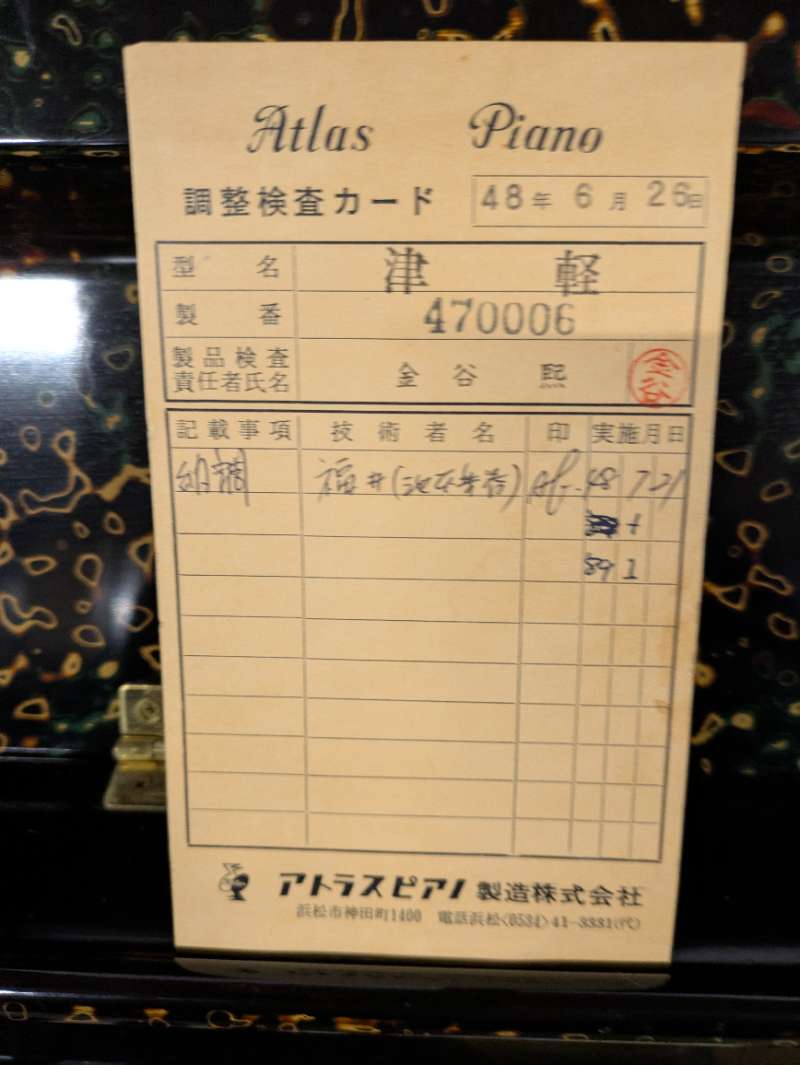 Atlas Piano
調整検査カード 48年 6月 26日
型名 津軽
製番 470006
製品検査責任者氏名 金谷 熙 金谷
記載事項 技術者名 印 実施月日
納調 福井 48 7 21
89 1
アトラスピアノ製造株式会社
浜松市神田町1400 電話浜松(0534)41-3331(代)